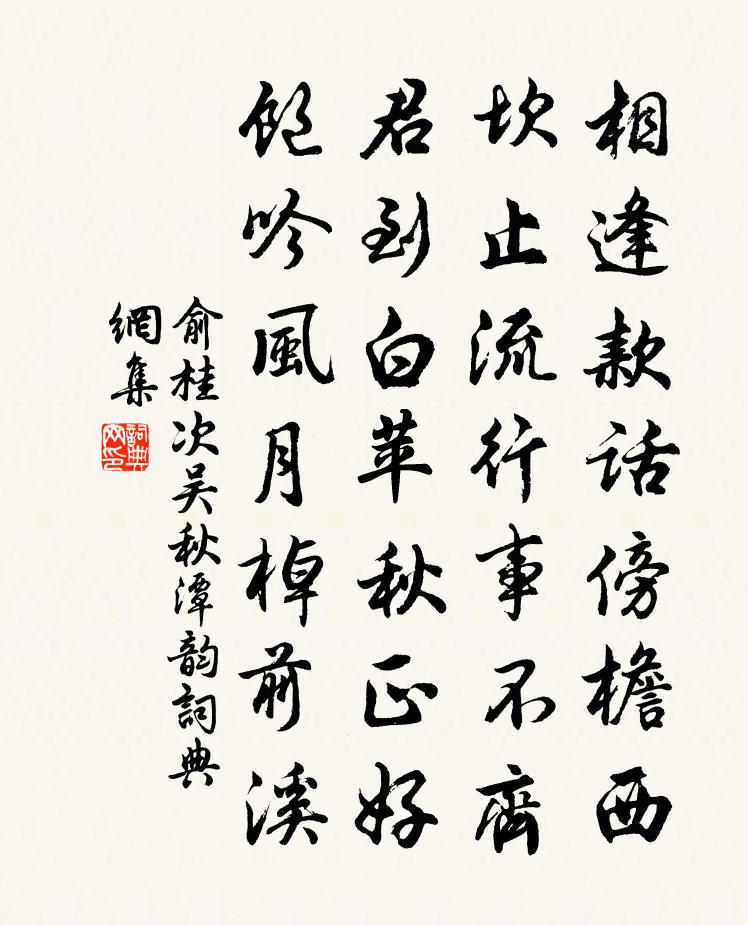 相逢款话傍檐西
坎止流行事不齊
君到白苹秋正好
飽吟風月棹前溪
俞桂次吴秋潭韵詞典
網集
詞典網印